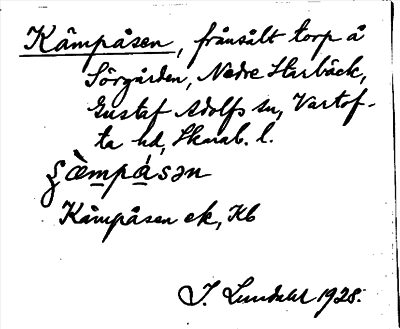 Kämpåsen, frånsålt torp å
Sörgården, Nedre Starbäck,
Gustaf Adolfs sn, Vartof-
ta hd, Skarab. l.
ʂæ̀mpá̱sən
Kämpåsen ek, Kb
J. Lundahl 1928.